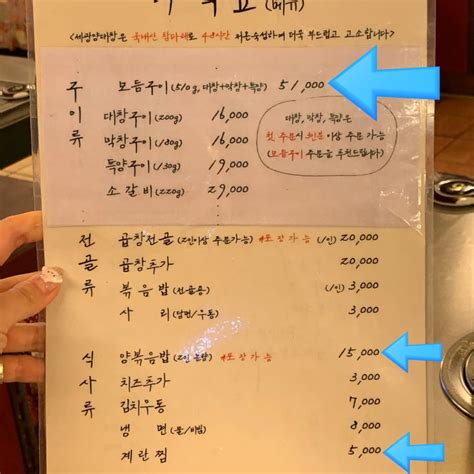 (메뉴)
<세광양대창은 국내산 참다래로 48시간 저온숙성하여 더욱 부드럽고 고소합니다>
구이류
모듬구이 (510g, 대창+막창+특양) 51,000
대창구이 (200g) 16,000
막창구이 (180g) 16,000
특양구이 (130g) 19,000
소갈비 (220g) 29,000
대창, 막창, 특양은
첫 주문시 3인분 이상 주문 가능
(모듬구이 주문을 추천드립니다)
전골류
곱창전골 (2인이상 주문가능) *포장가능 (1인) 20,000
곱창추가 20,000
볶음밥 (전골용) (1인) 3,000
사리 (당면/우동) 3,000
식사류
양볶음밥 (2인 분량) *포장가능 15,000
치즈추가 3,000
김치우동 7,000
냉면 (물/비빔) 8,000
계란찜 5,000